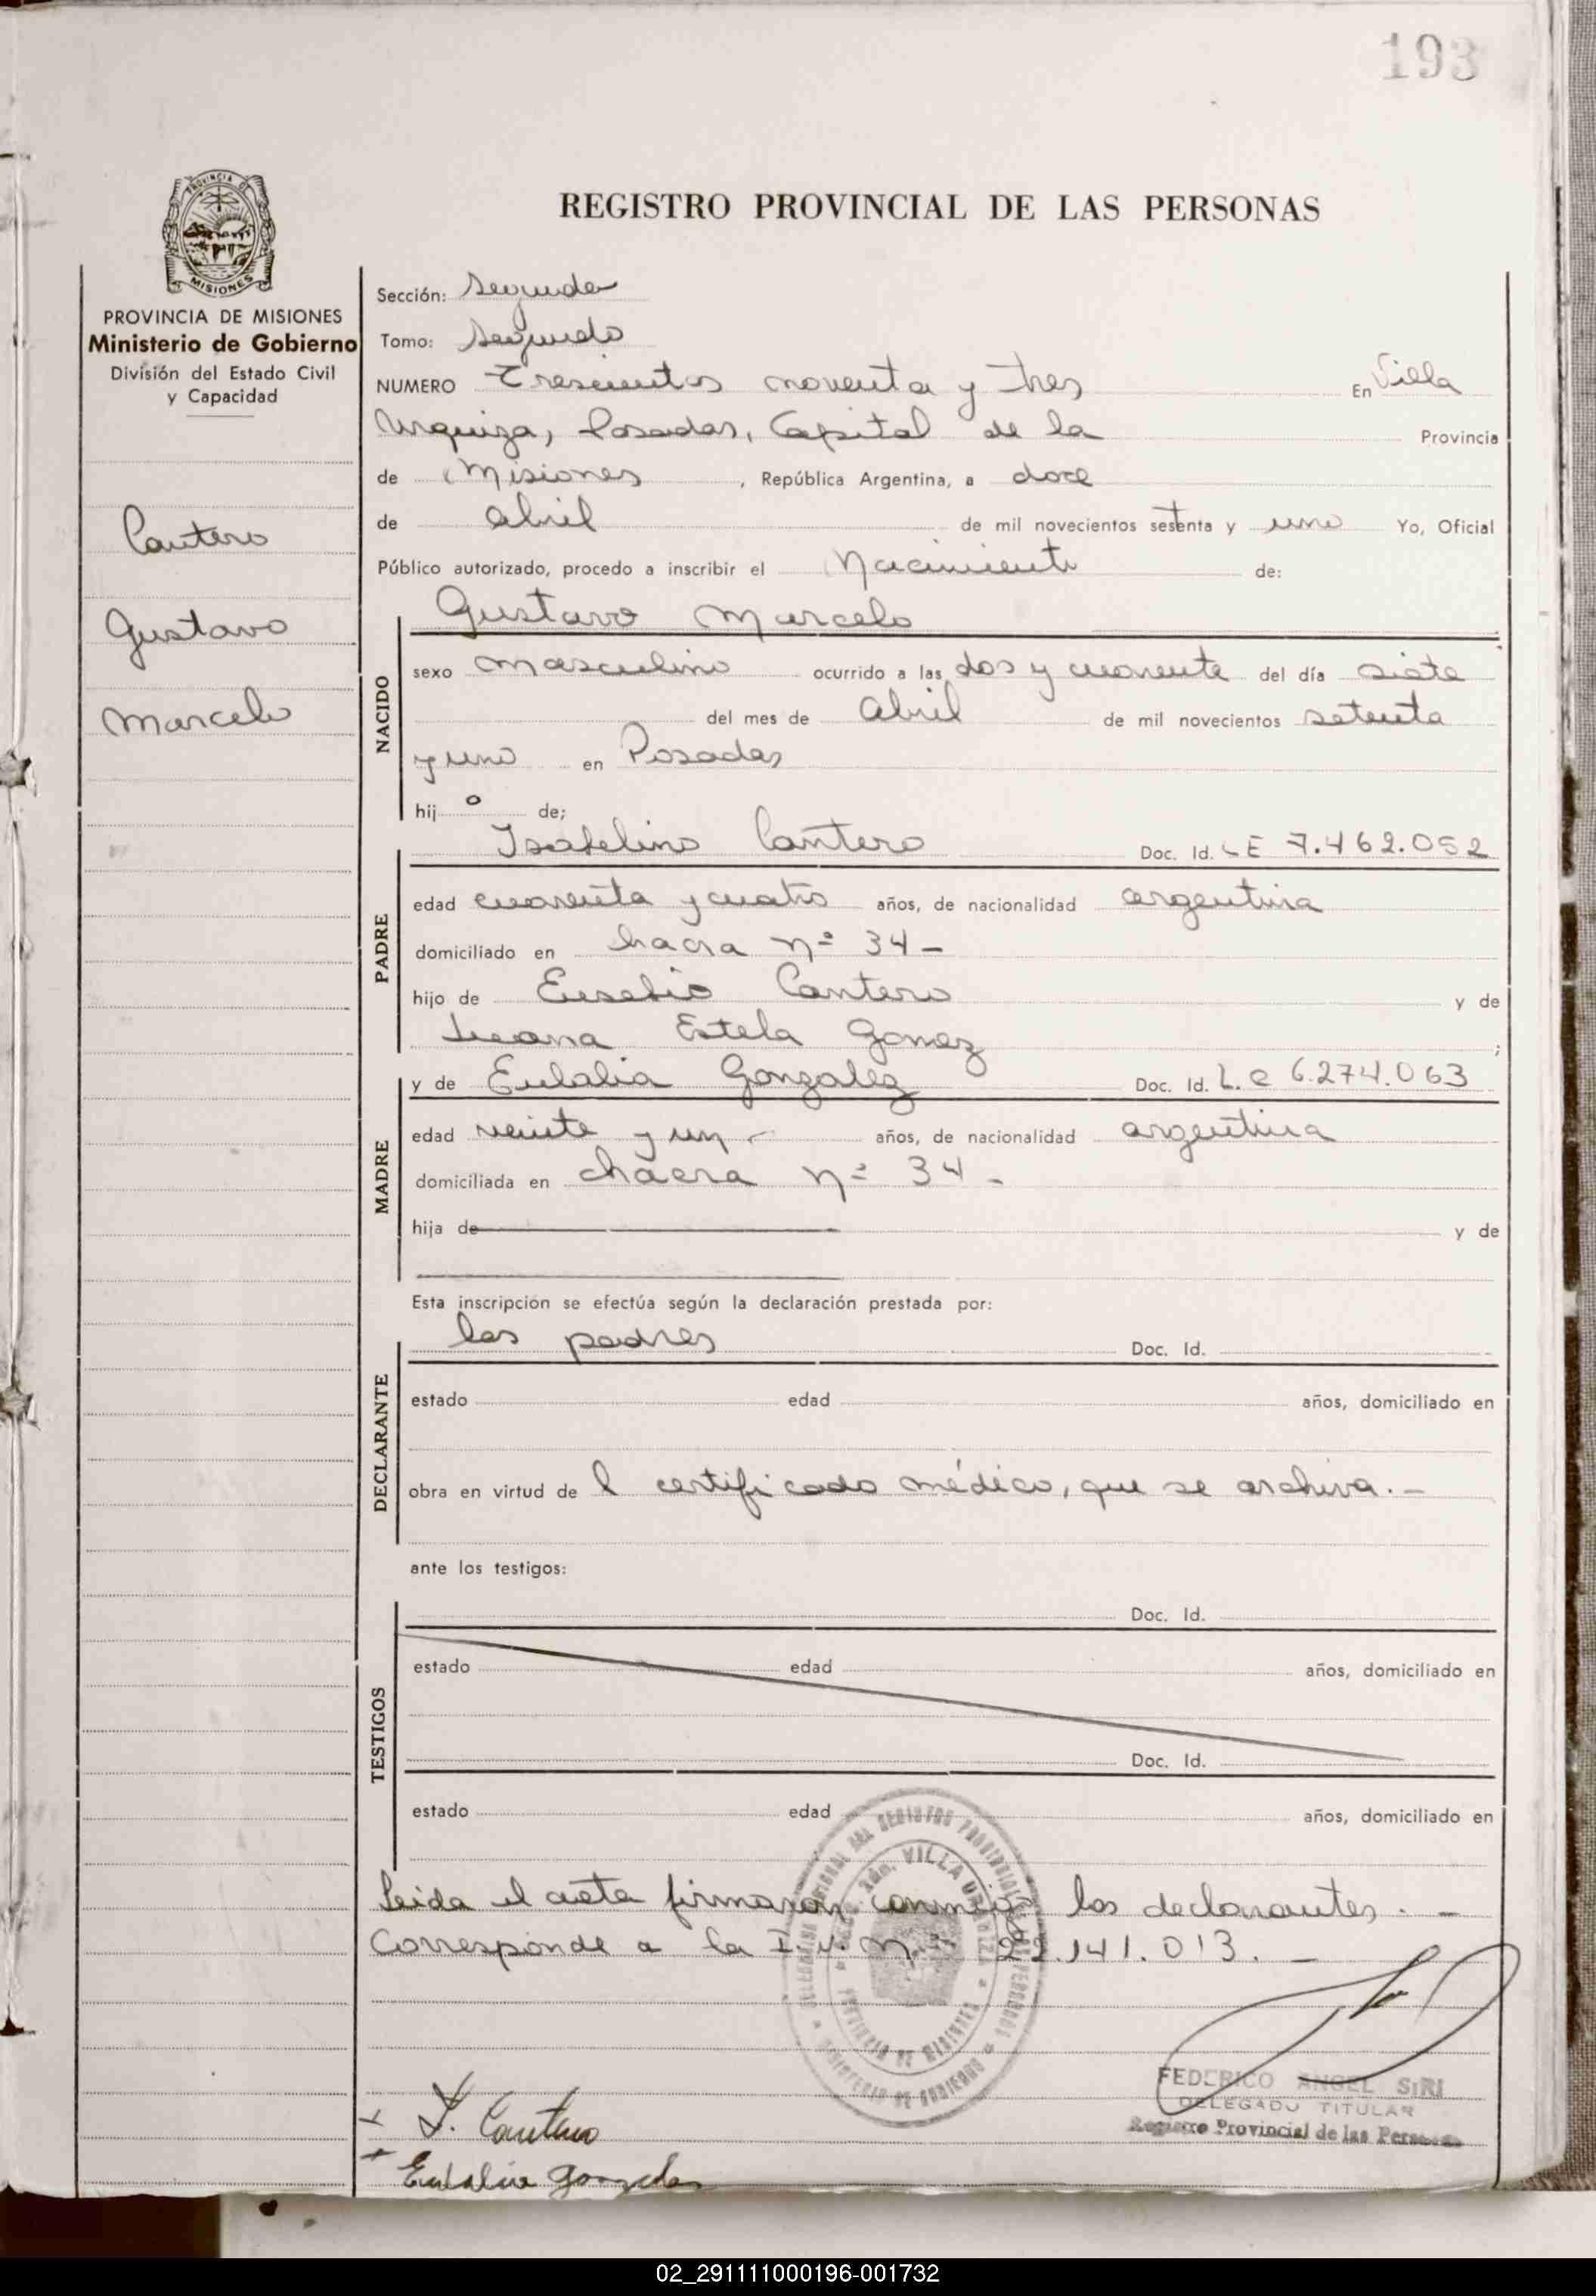 193
REGISTRO PROVINCIAL DE LAS PERSONAS
PROVINCIA DE MISIONES
PROVINCIA DE MISIONES
Ministerio de Gobierno
División del Estado Civil
y Capacidad
Cantero
Gustavo
Marcelo
Sección: Segunda
Tomo: Segundo
NUMERO Trescientos noventa y tres En Villa
Urquiza, Posadas, Capital de la Provincia
de Misiones, República Argentina, a doce
de abril de mil novecientos setenta y uno Yo, Oficial
Público autorizado, procedo a inscribir el Nacimiento de:
Gustavo Marcelo
NACIDO
sexo masculino ocurrido a las dos y cuarenta del día siete
del mes de abril de mil novecientos setenta
y uno en Posadas
hij o de;
Isabelino Cantero Doc. Id. LE 7.462.052
PADRE
edad cuarenta y cuatro años, de nacionalidad argentina
domiciliado en chacra nº 34 -
hijo de Eusebio Cantero y de
Juana Estela Gomez ;
y de Eulalia Gonzalez Doc. Id. L.C 6.274.063
MADRE
edad veinte y un - años, de nacionalidad argentina
domiciliada en chacra nº 34 -
hija de y de
Esta inscripción se efectúa según la declaración prestada por:
los padres Doc. Id.
DECLARANTE
estado edad años, domiciliado en
obra en virtud de l certificado médico, que se archiva. -
ante los testigos:
Doc. Id.
TESTIGOS
estado edad años, domiciliado en
Doc. Id.
estado edad años, domiciliado en
Leida el acta firmaron conmigo los declarantes. -
Corresponde a la I. N. 22.141.013. -
VILLA URQUIZA
PROVINCIA DE MISIONES
MINISTERIO DE GOBIERNO
FEDERICO ANGEL SIRI
DELEGADO TITULAR
Registro Provincial de las Personas
I. Cantero
Eulalia Gonzalez
02_291111000196-001732